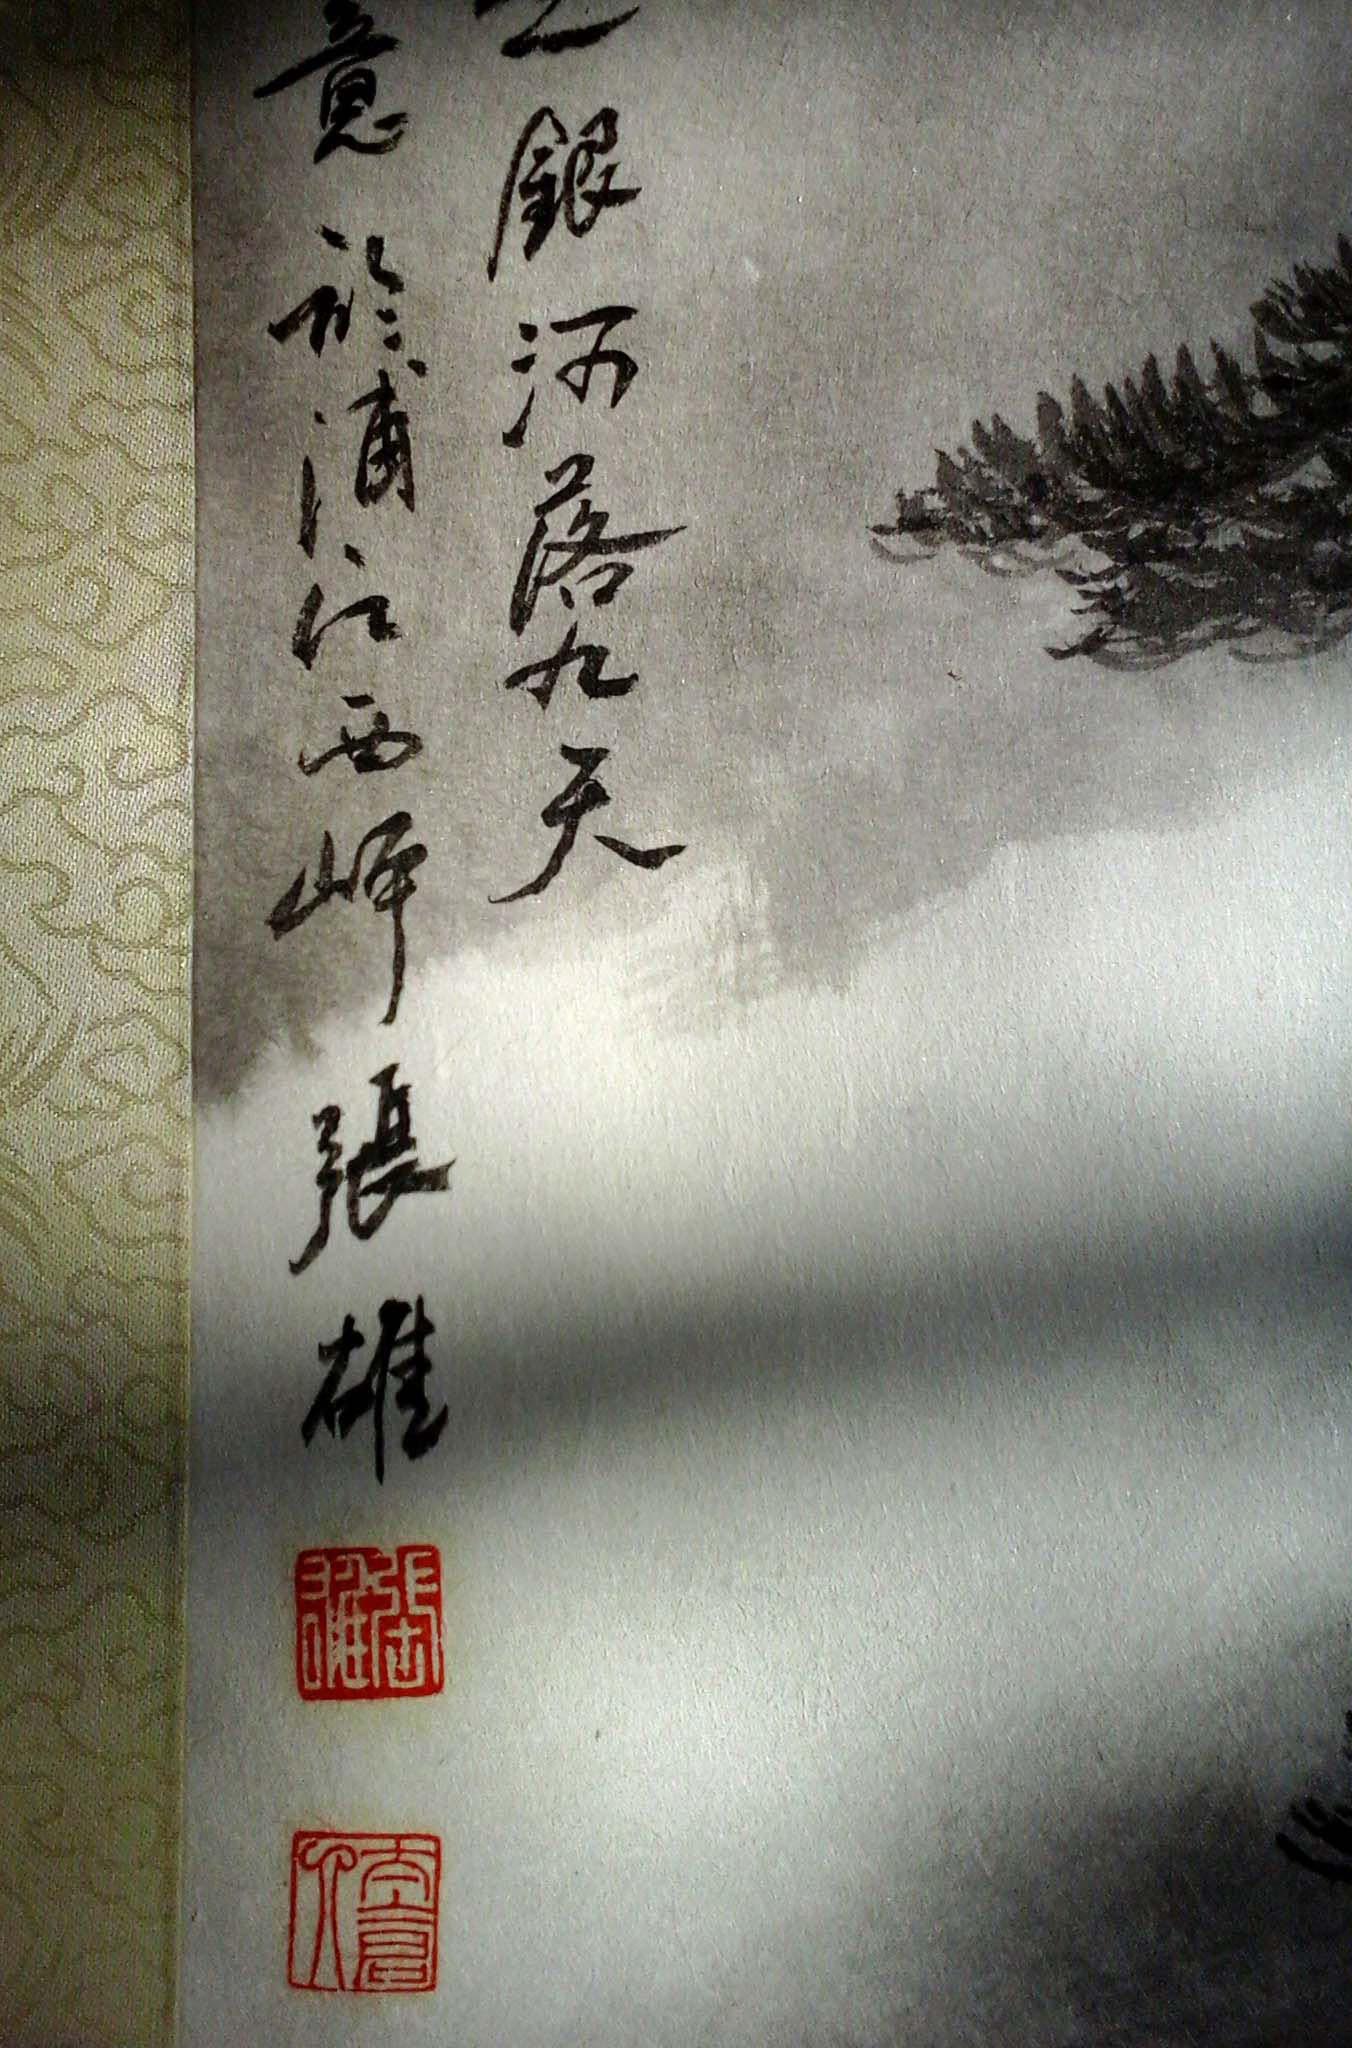 銀河落九天
意於浦江西岸張雄
張雄